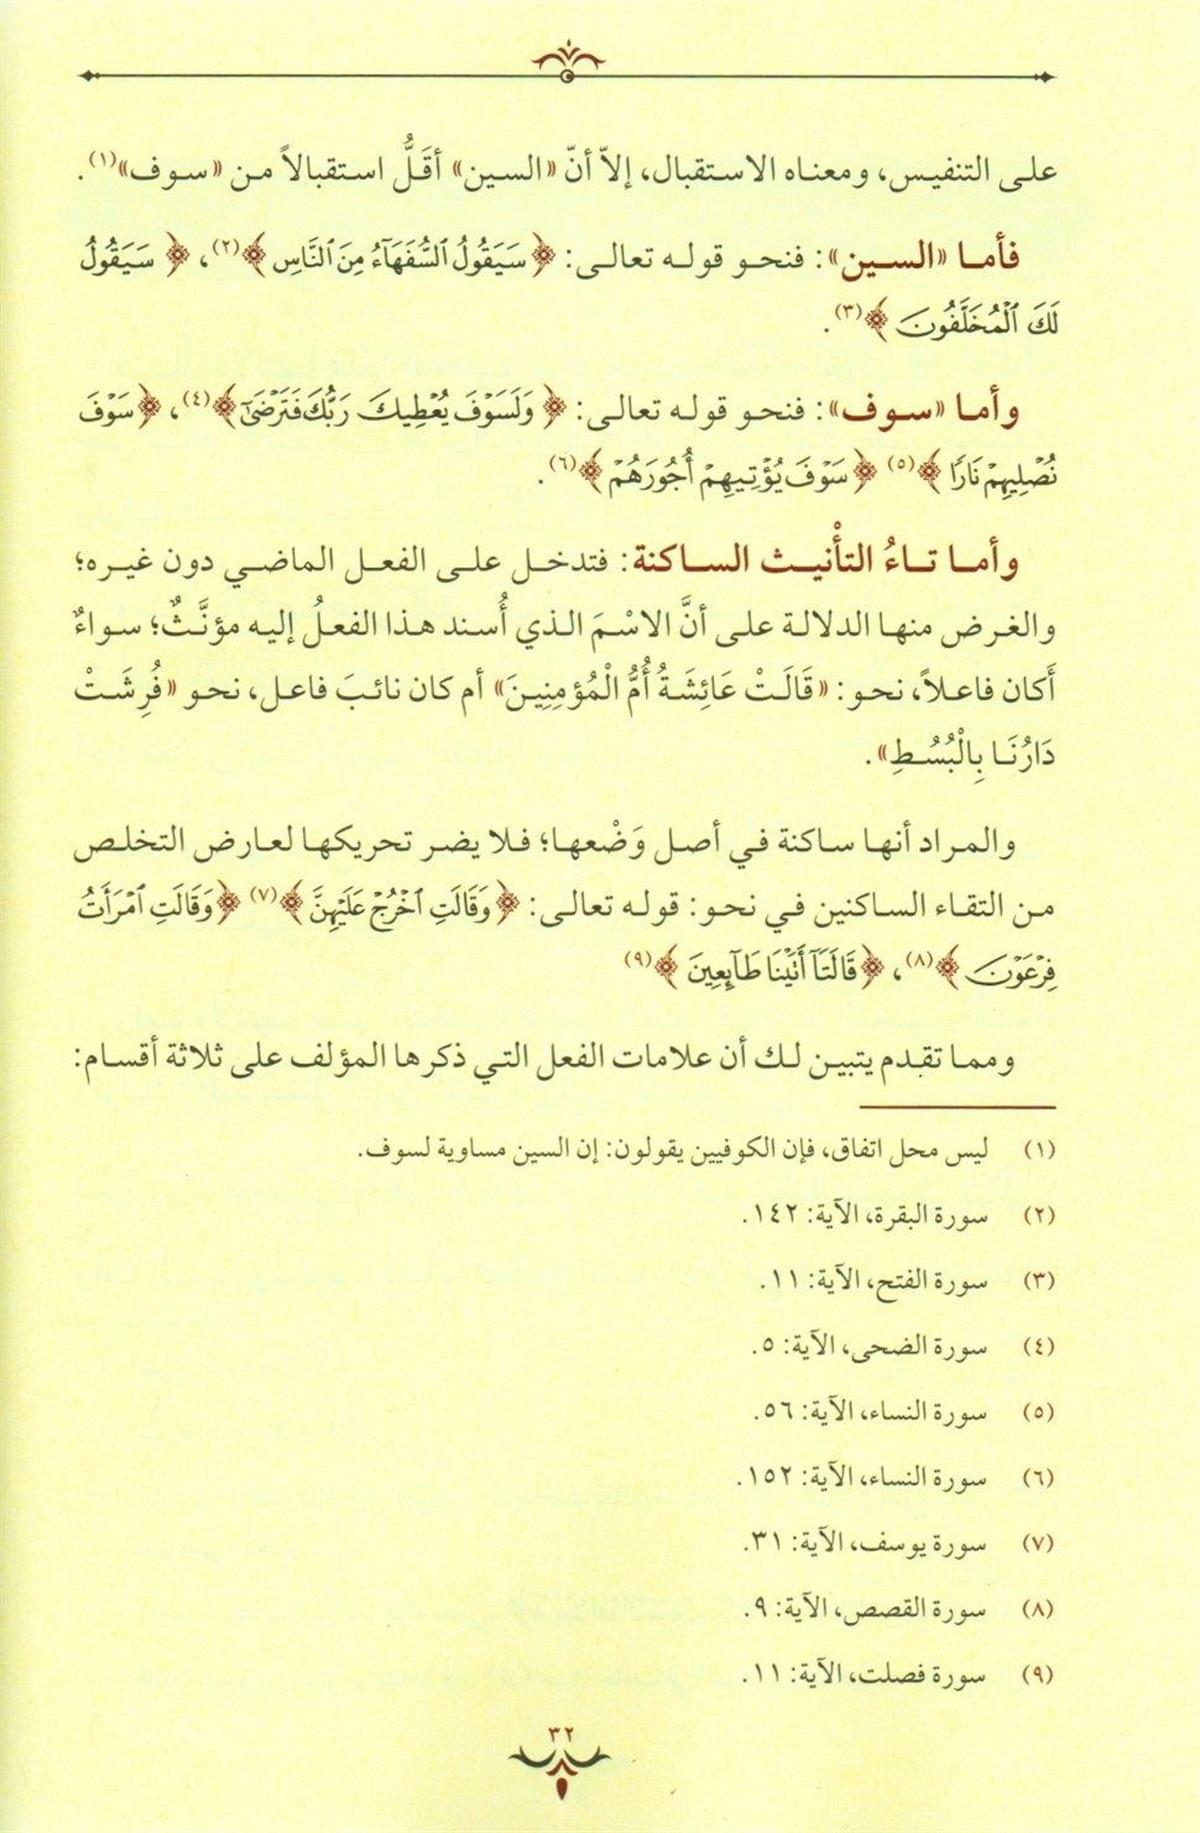 على التنفيس، ومعناه الاستقبال، إلاّ أنّ «السين» أقَلُّ استقبالاً من «سوف»(١).
فأما «السين»: فنحو قوله تعالى: ﴿سَيَقُولُ ٱلسُّفَهَآءُ مِنَ ٱلنَّاسِ﴾(٢)، ﴿سَيَقُولُ
لَكَ ٱلْمُخَلَّفُونَ﴾(٣).
وأما «سوف»: فنحو قوله تعالى: ﴿وَلَسَوْفَ يُعْطِيكَ رَبُّكَ فَتَرْضَىٰٓ﴾(٤)، ﴿سَوْفَ
نُصْلِيهِمْ نَارًا﴾(٥) ﴿سَوْفَ يُؤْتِيهِمْ أُجُورَهُمْ﴾(٦).
وأما تاءُ التأْنيث الساكنة: فتدخل على الفعل الماضي دون غيره؛
والغرض منها الدلالة على أنَّ الاسْمَ الذي أُسند هذا الفعلُ إليه مؤنَّثٌ؛ سواءٌ
أَكان فاعلاً، نحو: «قَالَتْ عَائِشَةُ أُمُّ الْمُؤمِنِينَ» أم كان نائبَ فاعل، نحو «فُرِشَتْ
دَارُنَا بِالْبُسُطِ».
والمراد أنها ساكنة في أصل وَضْعها؛ فلا يضر تحريكها لعارض التخلص
من التقاء الساكنين في نحو: قوله تعالى: ﴿وَقَالَتِ ٱخْرُجْ عَلَيْهِنَّ﴾(٧) ﴿وَقَالَتِ ٱمْرَأَتُ
فِرْعَوْنَ﴾(٨)، ﴿قَالَتَآ أَتَيْنَا طَآئِعِينَ﴾(٩)
ومما تقدم يتبين لك أن علامات الفعل التي ذكرها المؤلف على ثلاثة أقسام:
(١) ليس محل اتفاق، فإن الكوفيين يقولون: إن السين مساوية لسوف.
(٢) سورة البقرة، الآية: ١٤٢.
(٣) سورة الفتح، الآية: ١١.
(٤) سورة الضحى، الآية: ٥.
(٥) سورة النساء، الآية: ٥٦.
(٦) سورة النساء، الآية: ١٥٢.
(٧) سورة يوسف، الآية: ٣١.
(٨) سورة القصص، الآية: ٩.
(٩) سورة فصلت، الآية: ١١.
٣٢